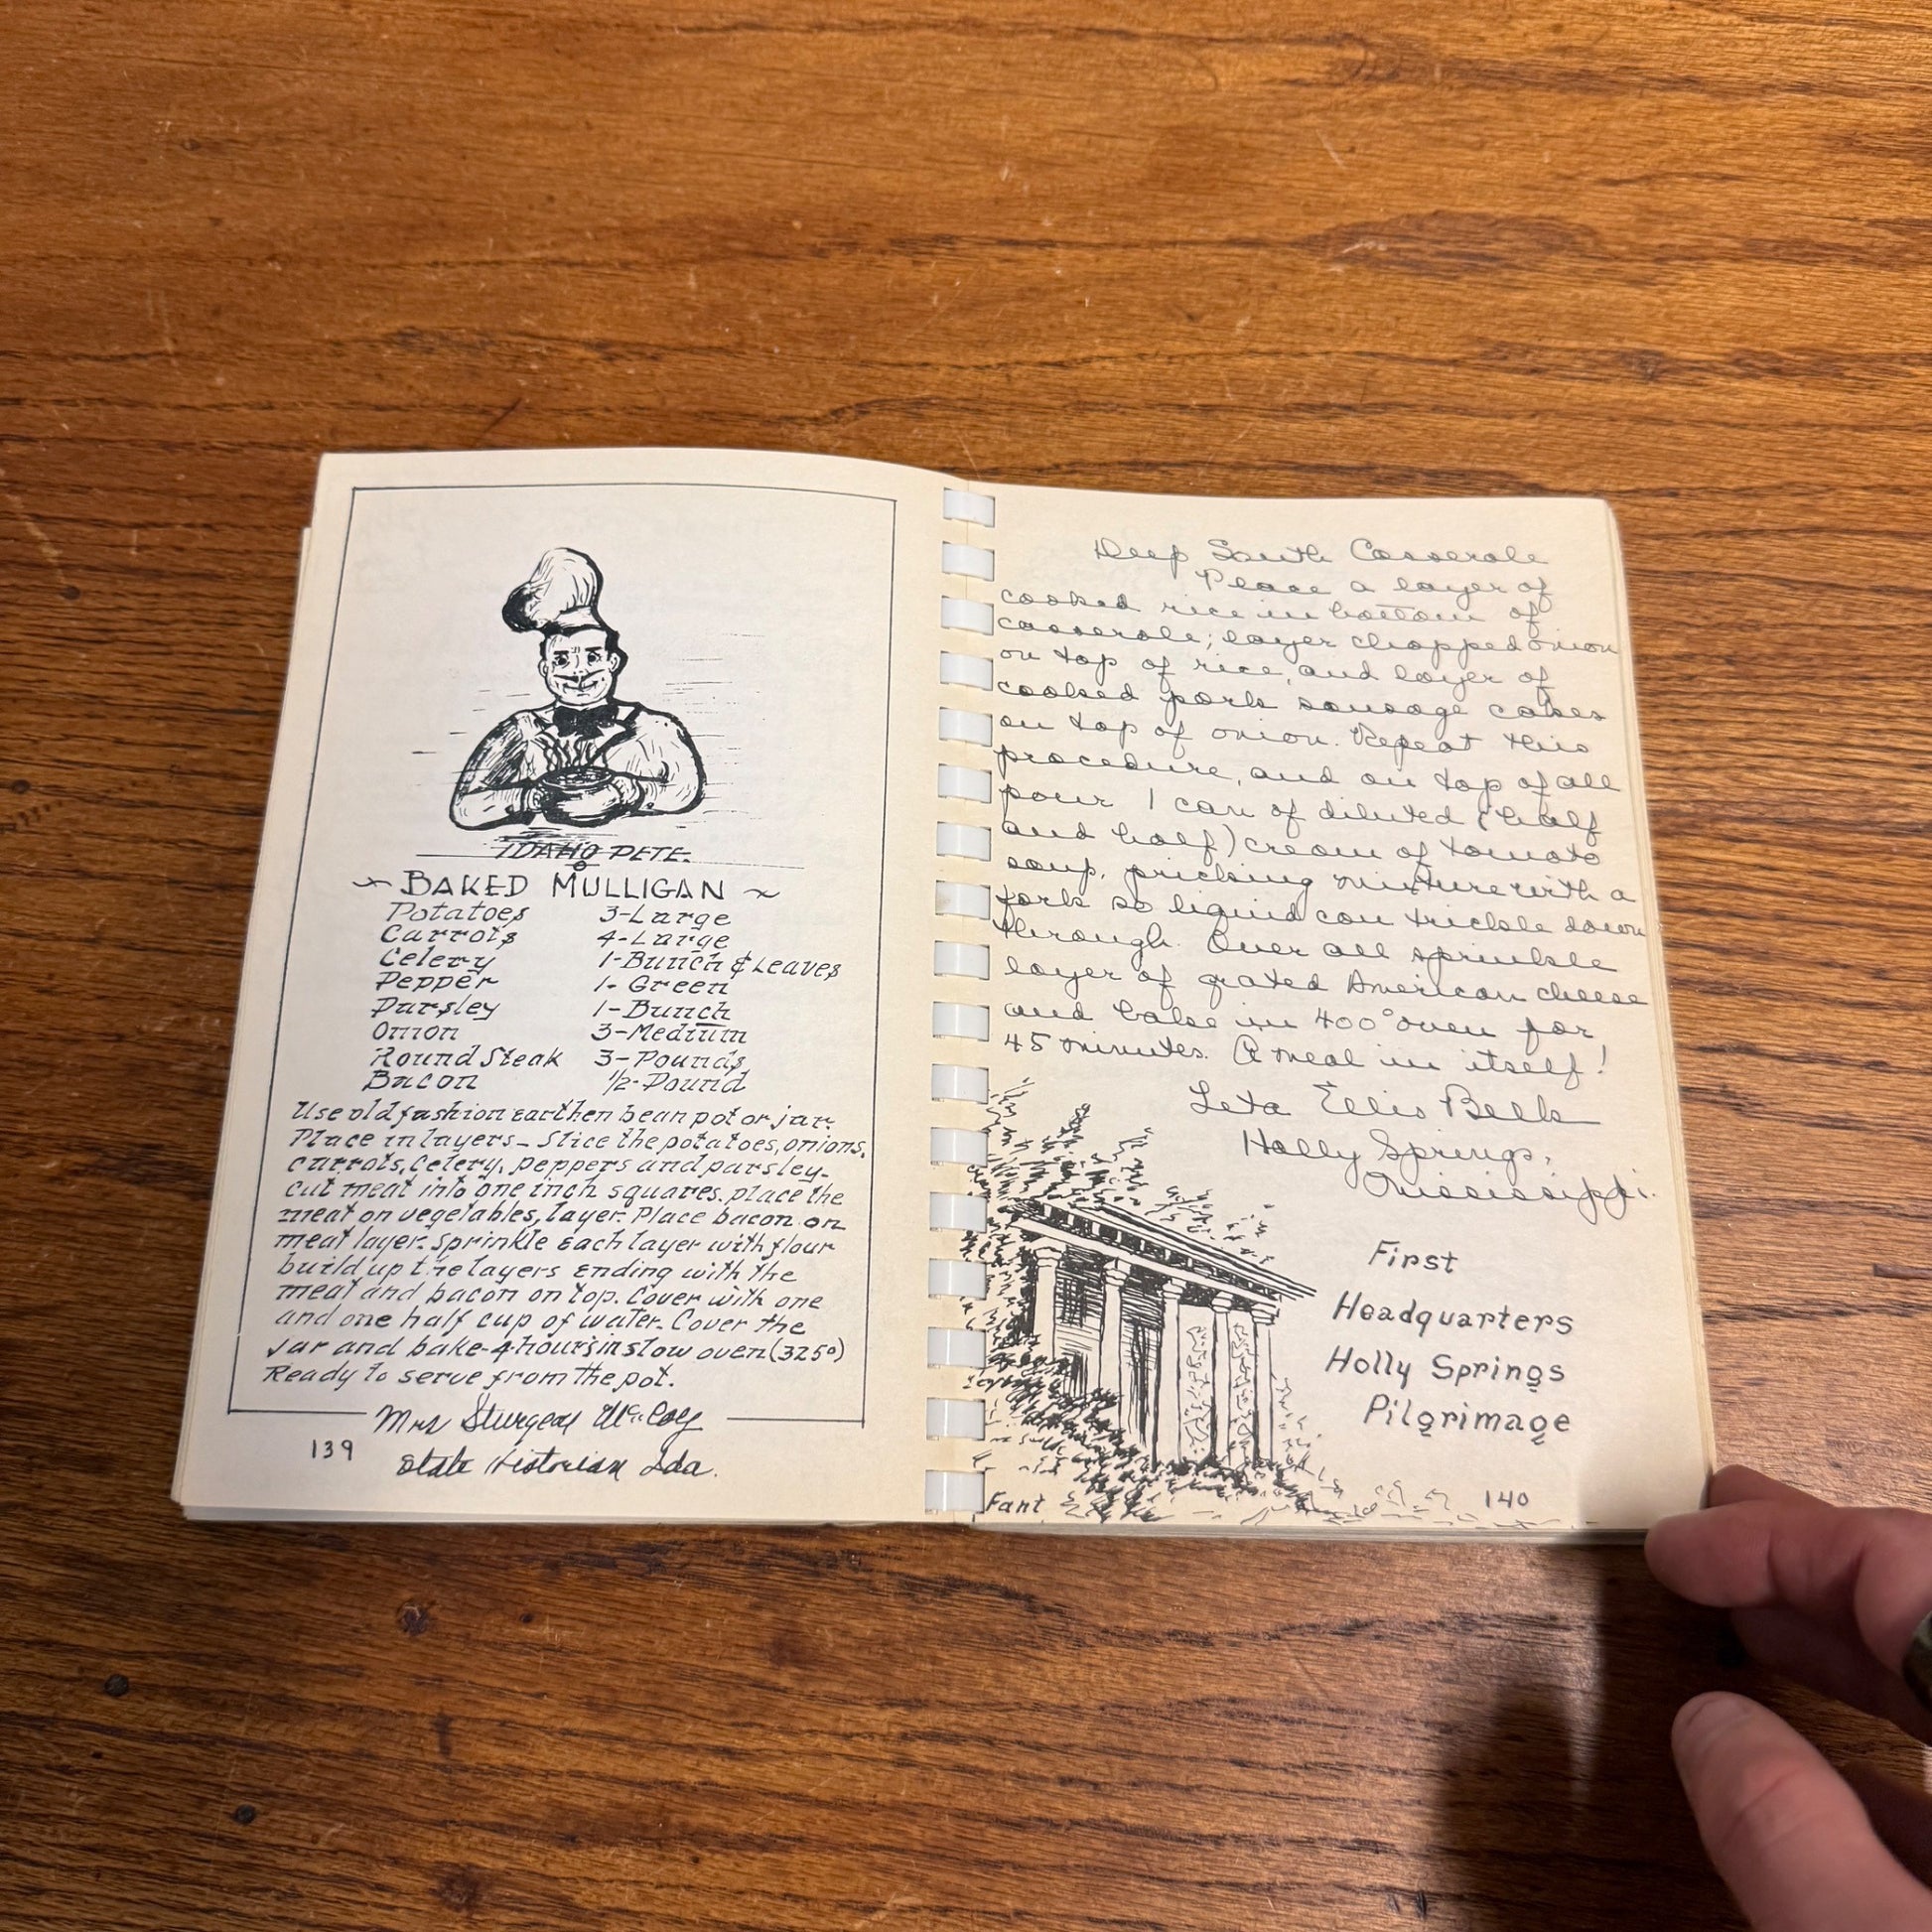 IDAHO PETE.
~ BAKED MULLIGAN ~
Potatoes 3-Large
Carrots 4-Large
Celery 1-Bunch & Leaves
Pepper 1-Green
Parsley 1-Bunch
Onion 3-Medium
Round Steak 3-Pounds
Bacon 1/2-Pound
Use old fashion earthen bean pot or jar.
Place in layers- Slice the potatoes, onions,
carrots, celery, peppers and parsley-
cut meat into one inch squares. place the
meat on vegetables, layer. Place bacon on
meat layer. Sprinkle each layer with flour
build up the layers ending with the
meat and bacon on top. Cover with one
and one half cup of water. Cover the
jar and bake-4-hours in slow oven (325°)
Ready to serve from the pot.
Mrs Sturgeon McCoy
State Historian Ida.
139
Deep South Casserole
Place a layer of
cooked rice in bottom of
casserole; layer chopped onion
on top of rice, and layer of
cooked pork sausage cakes
on top of onion. Repeat this
procedure, and on top of all
pour 1 can of diluted (half
and half) cream of tomato
soup, pricking mixture with a
fork so liquid can trickle down
through. Over all sprinkle
layer of grated American cheese
and bake in 400° oven for
45 minutes. A meal in itself!
Leta Ellis Belk
Holly Springs,
Mississippi.
First
Headquarters
Holly Springs
Pilgrimage
Fant
140